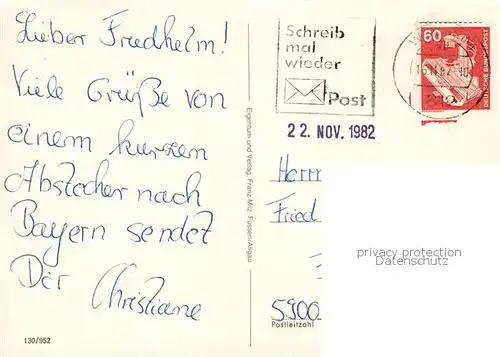 Lieber Friedhelm!
Viele Grüße von
einem kurzen
Abstecher nach
Bayern sendet
Dir
Christiane
130/952
Eigentum und Verlag, Franz Milz, Füssen/Allgäu
Schreib
mal
wieder
Post
22. NOV. 1982
60
DEUTSCHE BUNDESPOST
Herrn
Fried
5900
Postleitzahl
privacy protection
Datenschutz